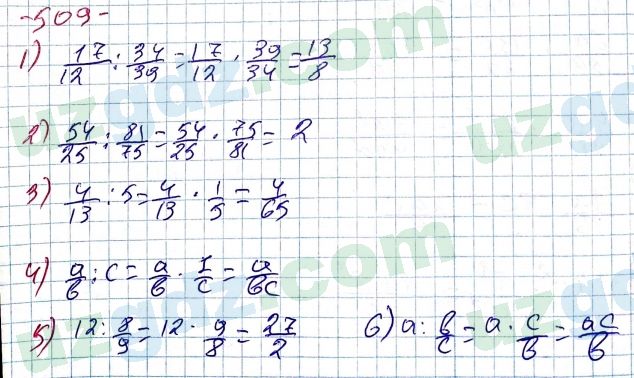 -509-
1) 17/12 : 34/39 = 17/12 · 39/34 = 13/8
2) 54/25 : 81/75 = 54/25 · 75/81 = 2
3) 4/13 : 5 = 4/13 · 1/5 = 4/65
4) a/b : c = a/b · 1/c = a/bc
5) 12 : 8/9 = 12 · 9/8 = 27/2 6) a : b/c = a · c/b = ac/b
uzgdz.com
uzgdz.com